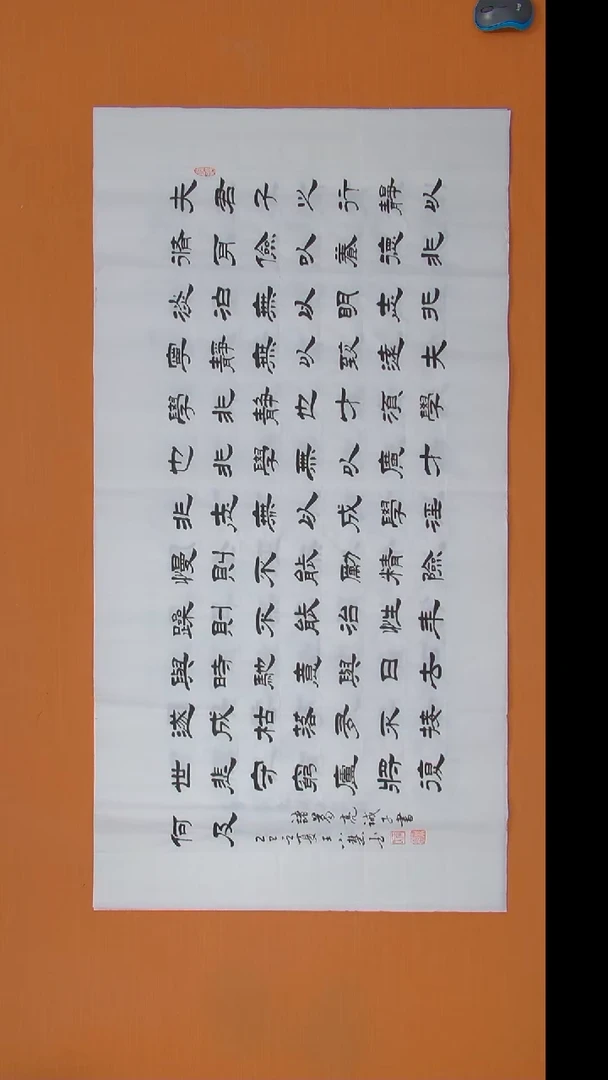 夫君子之行靜以
脩身儉以養德非
淡泊無以明志非
寧靜無以致遠夫
學須靜也才須學
也非學無以廣才
非志無以成學淫
慢則不能勵精險
躁則不能治性年
與時馳意與日去
遂成枯落多不接
世悲守窮廬將復
何及
諸葛亮誡子書
乙巳夏王